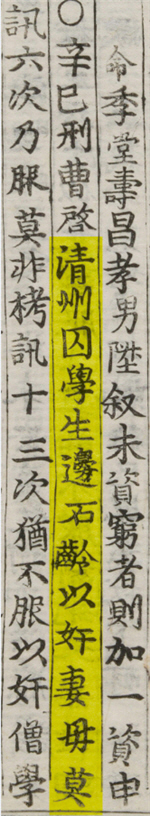 命季堂壽昌孝男陞叙未資窮者則加一資申
○辛巳刑曹啓清州囚學生邊石齡以奸妻母莫
訊六次乃服莫非栲訊十三次猶不服以奸僧學